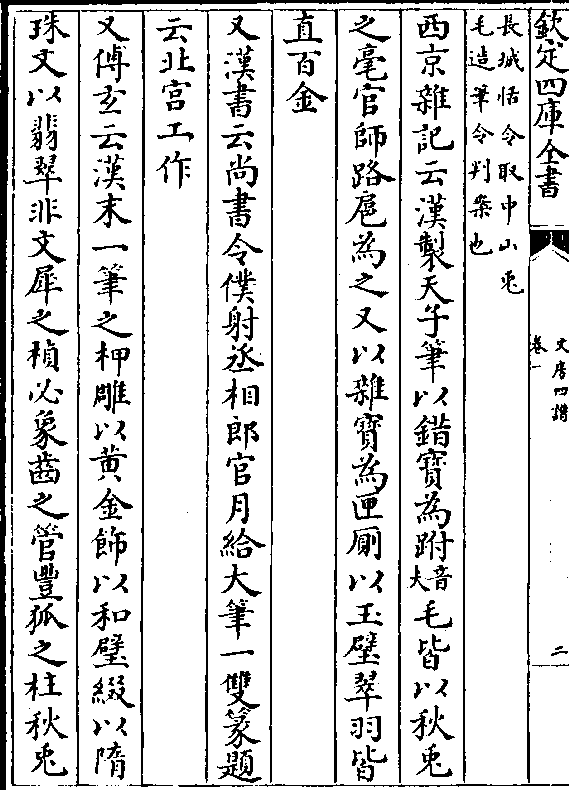 欽定四庫全書
文房四譜
卷一
二
長城恬令取中山兎
毛造筆令判案也
西京雜記云漢製天子筆以錯寳為跗音夫毛皆以秋兎
之毫官師路扈為之又以雜寳為匣厠以玉璧翠羽皆
直百金
又漢書云尚書令僕射丞相郎官月給大筆一雙篆題
云北宮工作
又傅玄云漢末一筆之柙雕以黄金飾以和璧綴以隋
珠文以翡翠非文犀之楨必象齒之管豐狐之柱秋兎